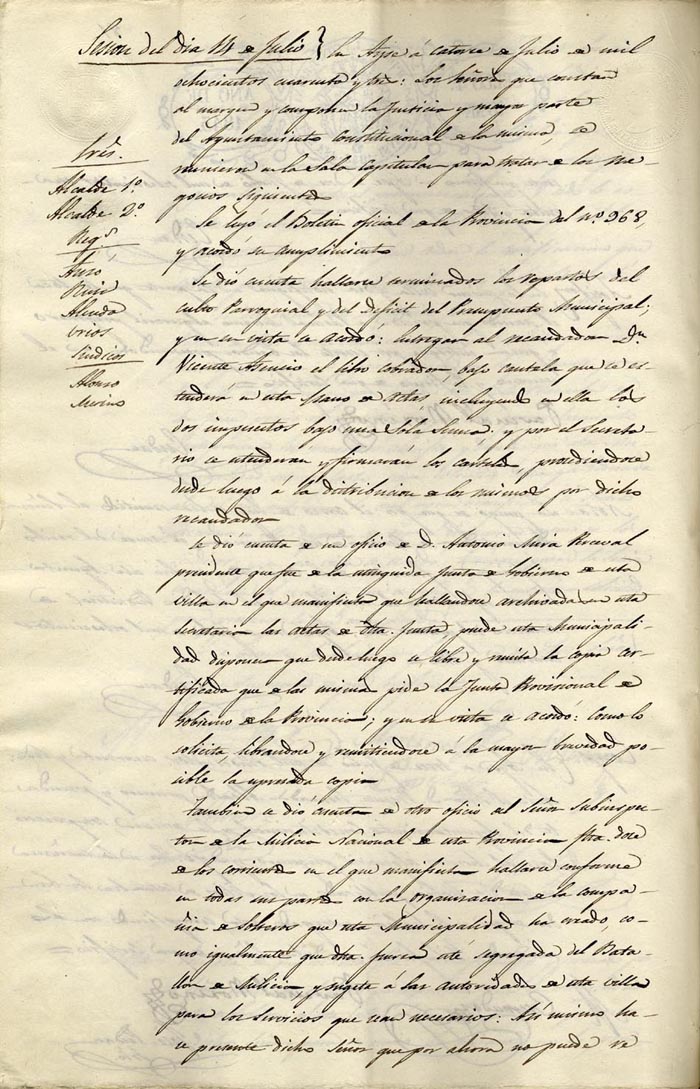 Sesion del dia 14 de Julio
Sres.
Alcalde 1º
Alcalde 2º
Regs
Ruiz
Síndicos
Alonso
Merino
á catorce de Julio de mil
ochocientos cuarenta y tres: Los Señores que constan
al margen y componen la Justicia y mayor parte
del Ayuntamiento Constitucional de la misma, se
reunieron en la Sala Capitular para tratar de los ne-
gocios siguientes
Se leyó el Boletin oficial de la Provincia del nº 968,
y acordó su cumplimiento
Se dió cuenta hallarse terminados los repartos del
culto Parroquial y del Deficit del Presupuesto Municipal;
y en su vista se acordó: Entregar al recaudador Dn
Vicente Asensio el libro cobrador, bajo cautela que se es-
tenderá en este Mano de actas, incluyendo en ella los
dos impuestos bajo una Sola Suma; y por el Secreta-
rio se atenderan y firmarán los procediendose
desde luego á la distribucion de los mismos por dicho
recaudador
Se dió cuenta de un oficio de D. Antonio Mira Perceval
presidente que fue de la estinguida Junta de Gobierno de esta
villa en el que manifiesta que hallandose archivadas en esta
secretaria las actas de dha. Junta puede esta Municipali-
dad disponer que desde luego se libre y remita la copia cer-
tificada que de las misma pide la Junta Provisional de
Gobierno de la Provincia; y en su vista se acordó: Como lo
solicita, librandose y remitiendose á la mayor brevedad po-
sible la espresada copia
Tambien se dió cuenta de otro oficio del Señor Subinspec-
tor de la Milicia Nacional de esta Provincia fha. doce
de los corrientes en el que manifiesta hallarse conforme
en todas sus partes con la organizacion de la compa-
ñia de Solteros que esta Municipalidad ha creado, co-
mo igualmente que dha. fuerza esté segregada del Bata-
llon de Milicia y sugeta á las autoridades de esta villa
para los Servicios que sean necesarios: Asi mismo ha-
ce presente dicho Señor que por ahora no puede re